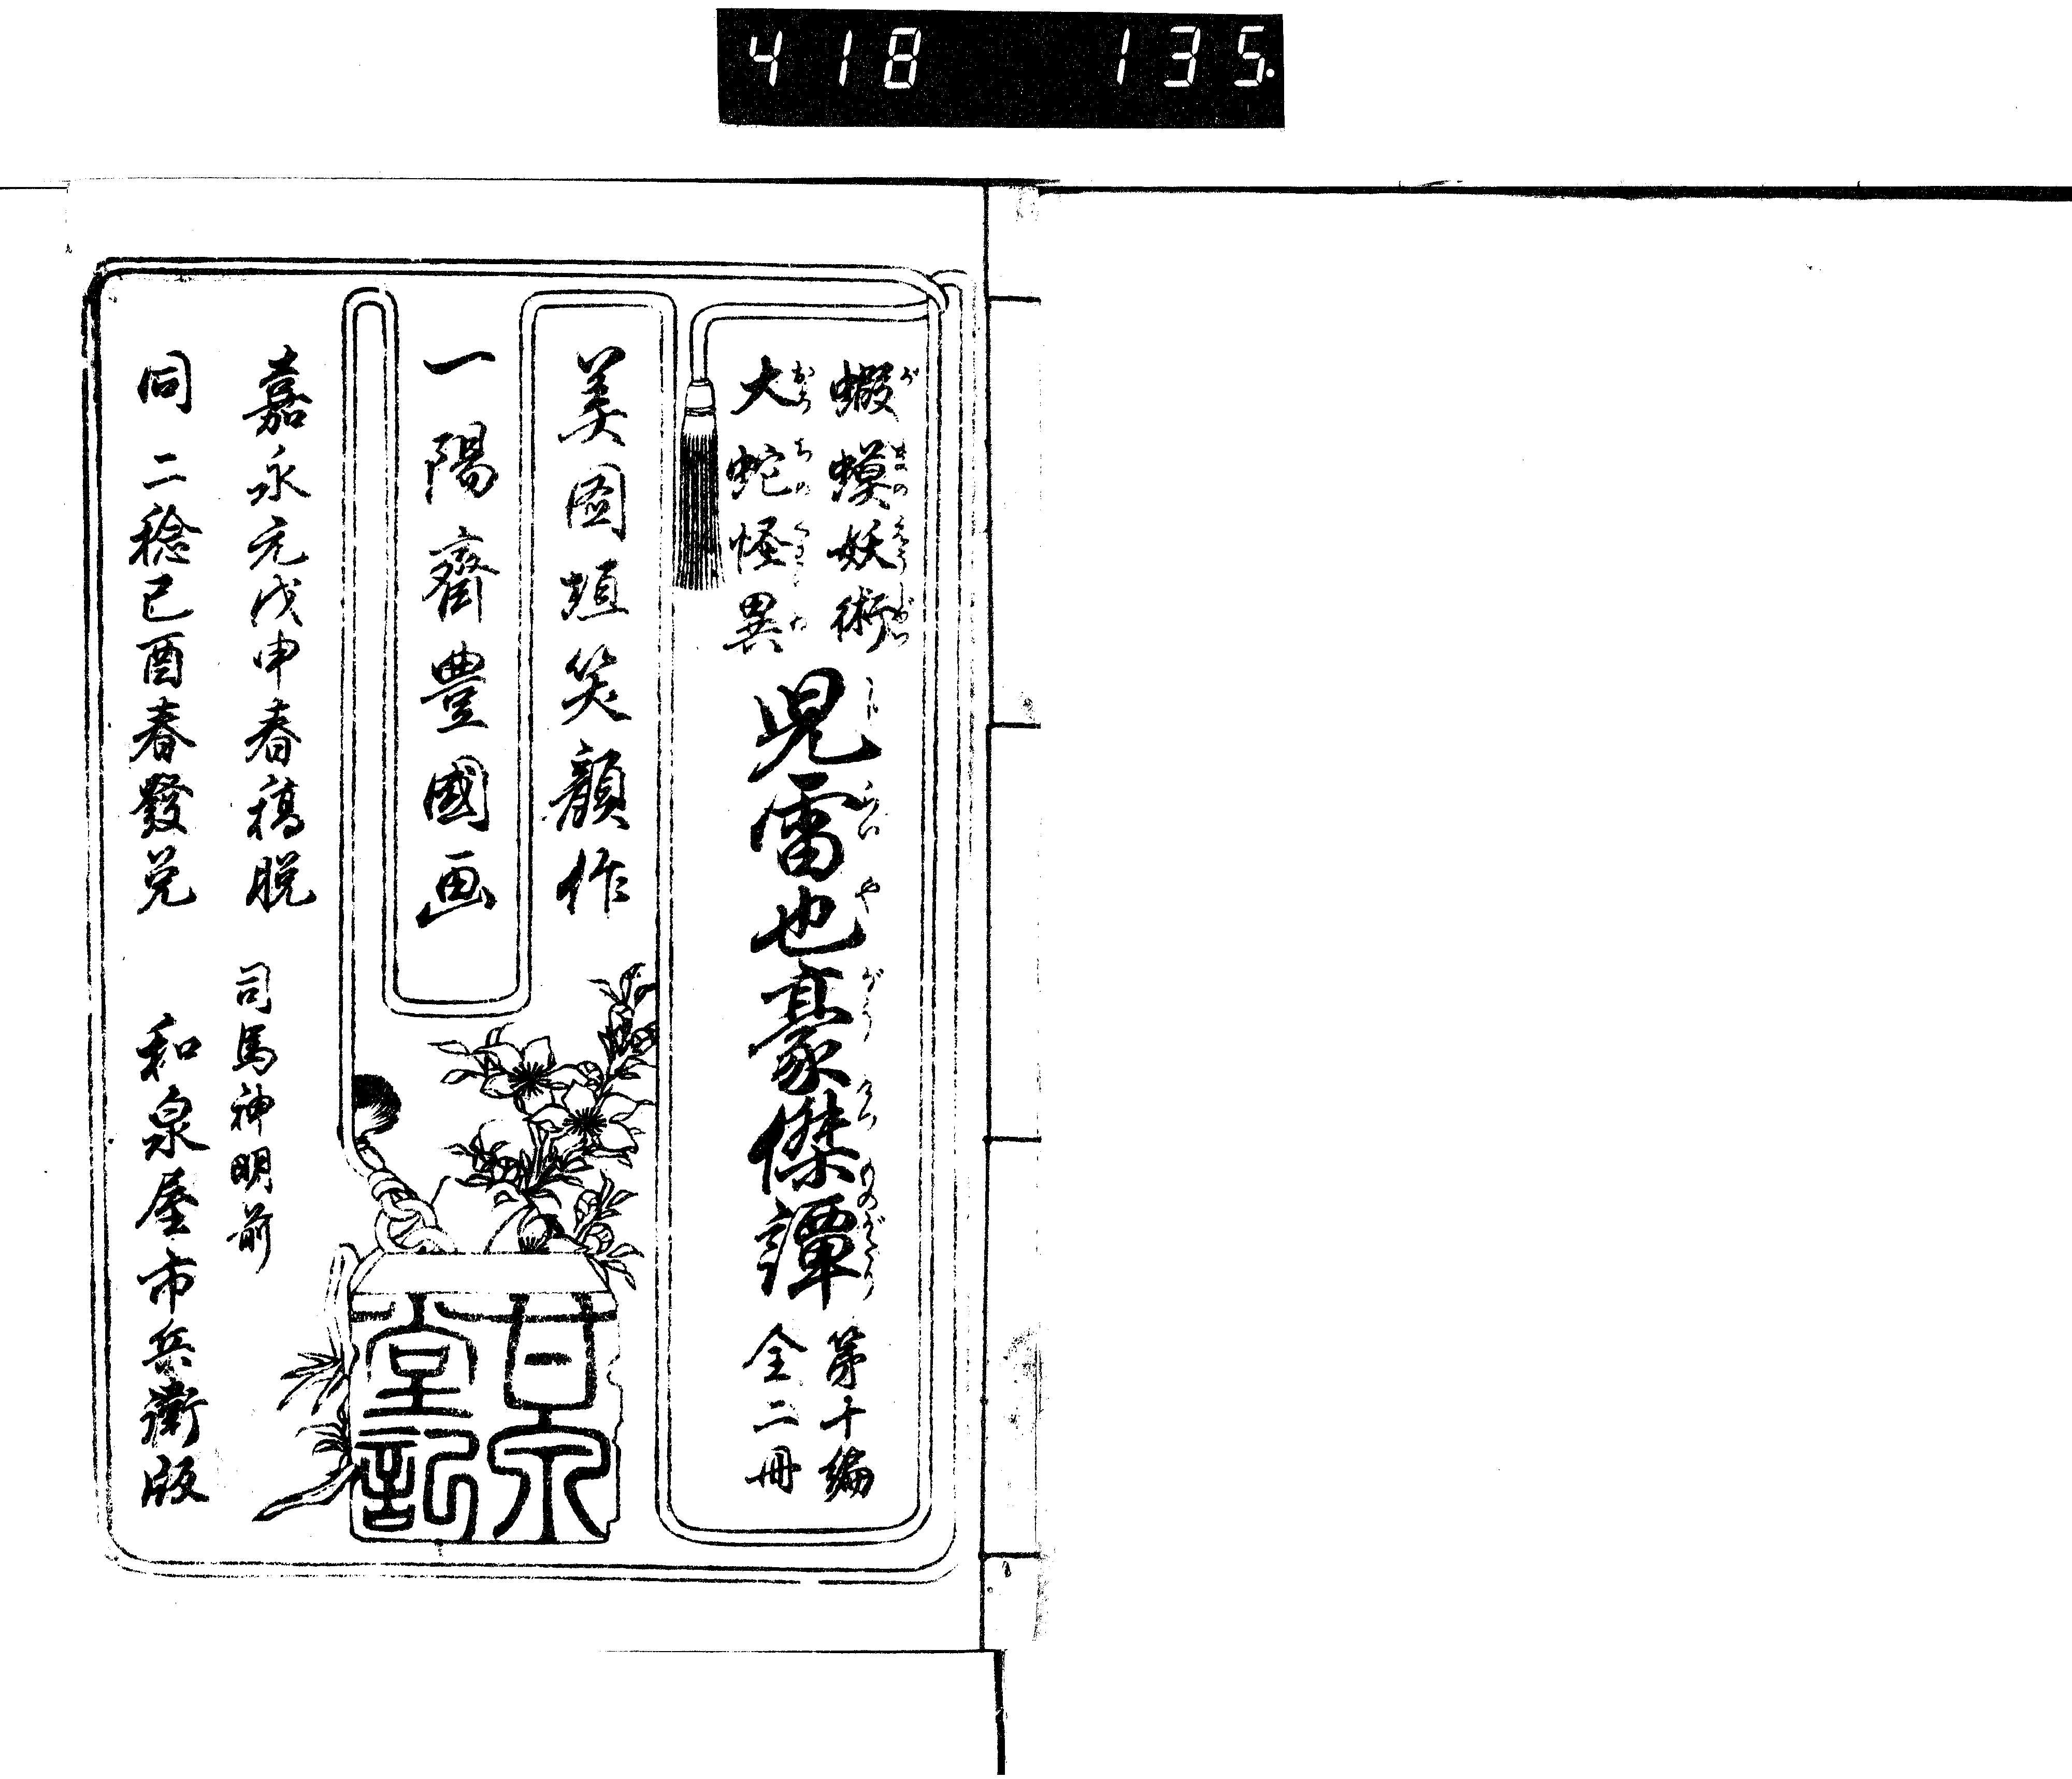 418 135.
蝦蟇妖術
大蛇怪異
児雷也豪傑譚
第十編
全二冊
美图垣笑顔作
一陽齋豊國画
甘泉堂記
嘉永元戊申春稿脱
同二稔己酉春發兌
司馬神明前
和泉屋市兵衛版